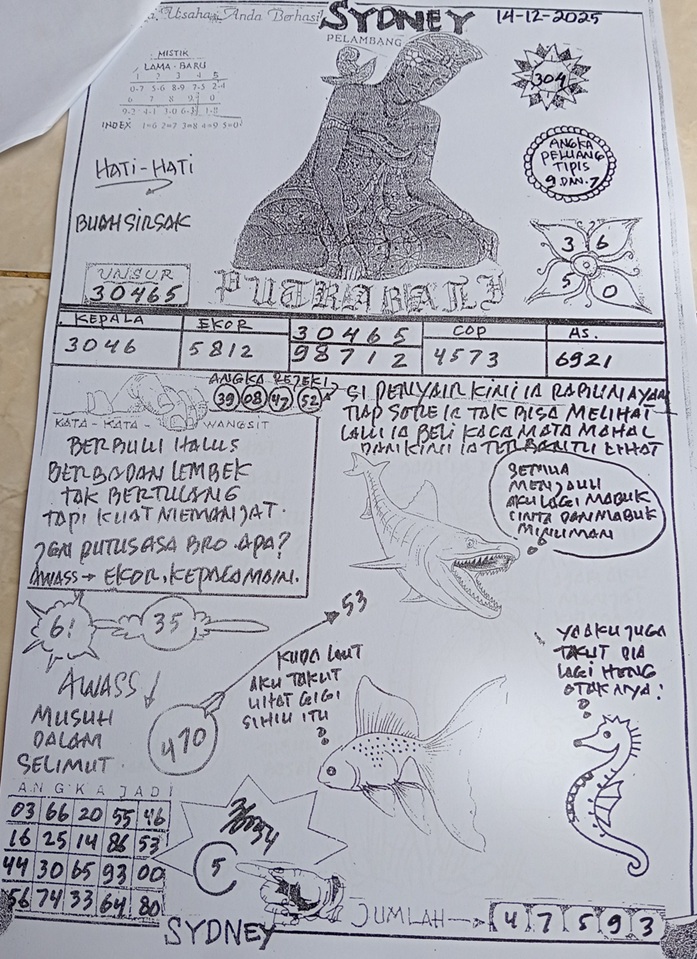 Usaha Anda Berhasil
SYDNEY
14-12-2025
PELAMBANG
MISTIK
LAMA-BARU
1 2 3 4 5
0-7 5-6 8-9 7-5 2-4
6 7 8 9 0
INDEX 1=6 2=7 3=8 4=9 5=0
304
HATI-HATI
ANGKA
PELUANG
TIPIS
9 DAN 7
BUAH SIRSAK
3 6
5 0
UNSUR
30465
PUTRA BALI
KEPALA EKOR 30465 COP AS.
3046 5812 98712 4573 6921
ANGKA REJEKI
39 08 47 52
KATA-KATA WANGSIT
SI PENYAIR KINI IA RABUN AYAM
TIAP SORE IA TAK BISA MELIHAT
LALU IA BELI KACA MATA MAHAL
DAN KINI IA TERBANTU LIHAT
BERBULU HALUS
BERBADAN LEMBEK
TAK BERTULANG
TAPI KUAT MEMANJAT.
JGN PUTUS ASA BRO. APA?
AWASS → EKOR, KEPALA MAIN.
SEMUA
MENJAUH
AKU LAGI MABUK
CINTA DAN MABUK
MINUMAN
6!
35
53
KUDA LAUT
AKU TAKUT
LIHAT GIGI
SIHIU ITU
YA AKU JUGA
TAKUT DIA
LAGI HENG
OTAKNYA!
AWASS
MUSUH
DALAM
SELIMUT.
470
ANGKA JADI
03 66 20 55 46
16 25 14 86 53
44 30 65 93 00
56 74 33 64 80
5
SYDNEY
JUMLAH → 4 7 5 9 3